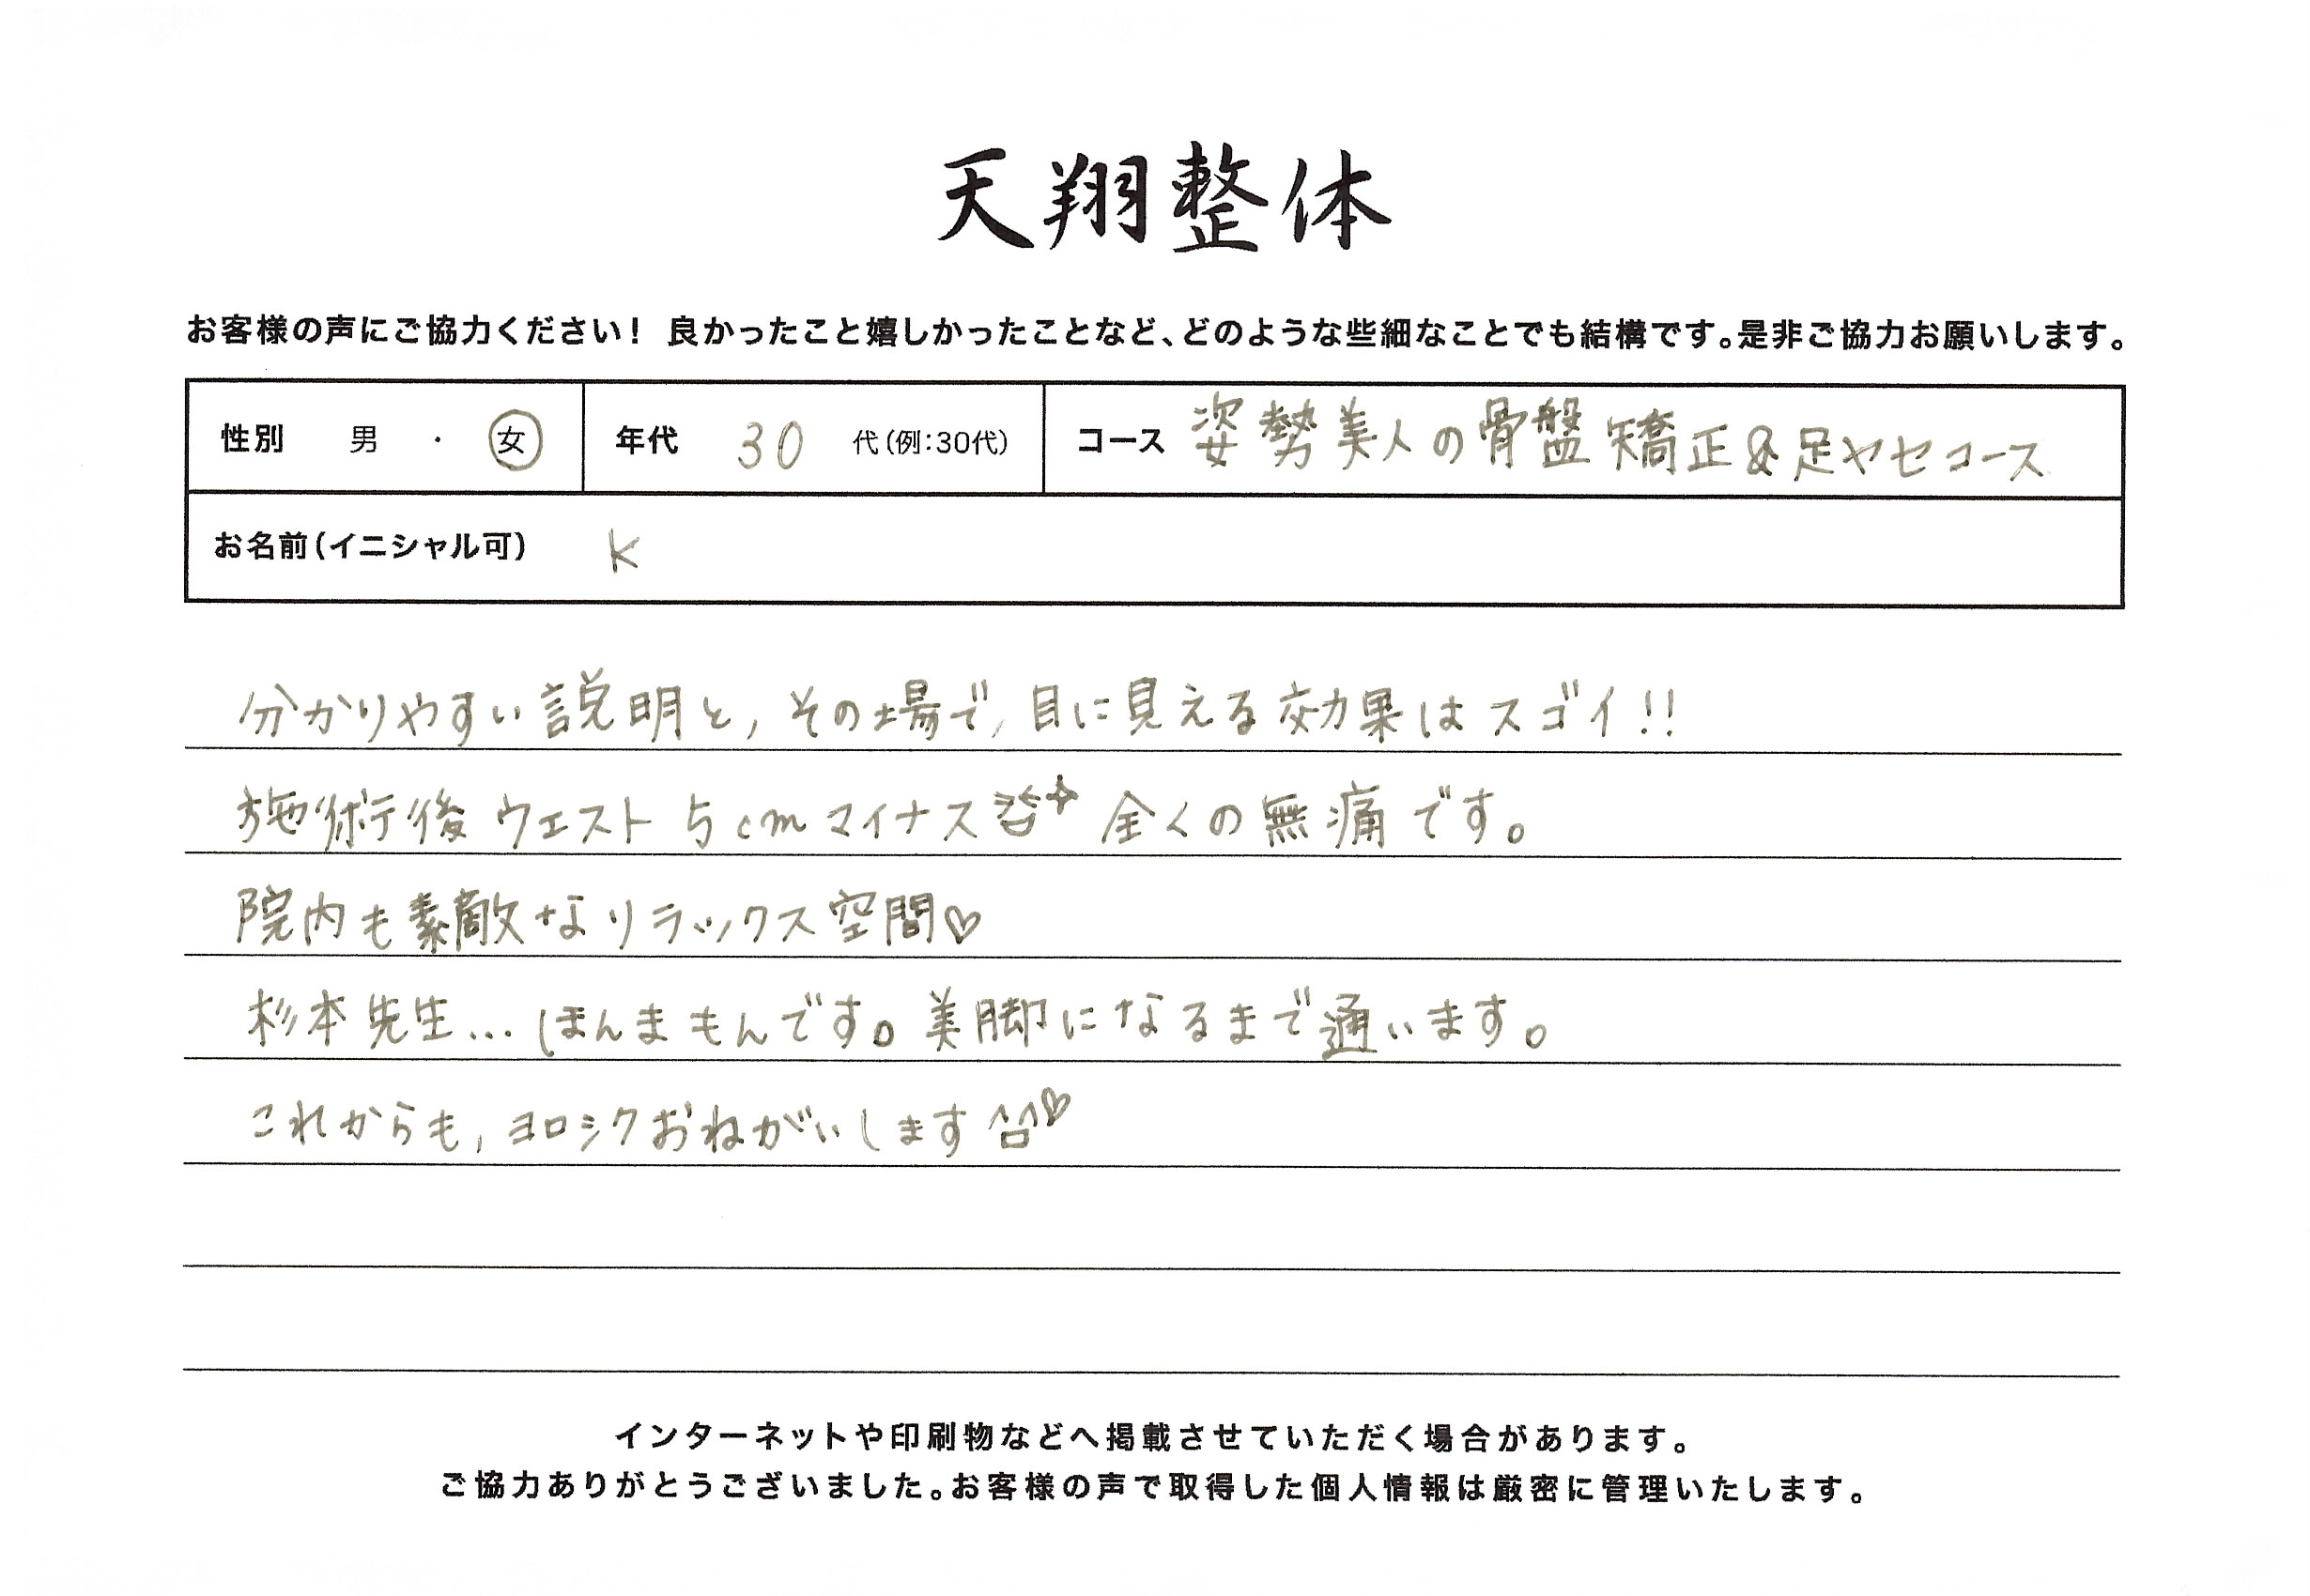 天翔整体
お客様の声にご協力ください! 良かったこと嬉しかったことなど、どのような些細なことでも結構です。是非ご協力お願いします。
性別 男 ・ 女 年代 30 代(例:30代) コース 姿勢美人の骨盤矯正&足ヤセコース
お名前(イニシャル可) K
分かりやすい説明と,その場で,目に見える効果はスゴイ!!
施術後ウエスト5cmマイナス 全くの無痛です。
院内も素敵なリラックス空間♡
杉本先生…ほんまもんです。美脚になるまで通います。
これからも,ヨロシクおねがいします♡
インターネットや印刷物などへ掲載させていただく場合があります。
ご協力ありがとうございました。お客様の声で取得した個人情報は厳密に管理いたします。